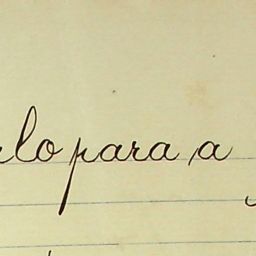 lo para a